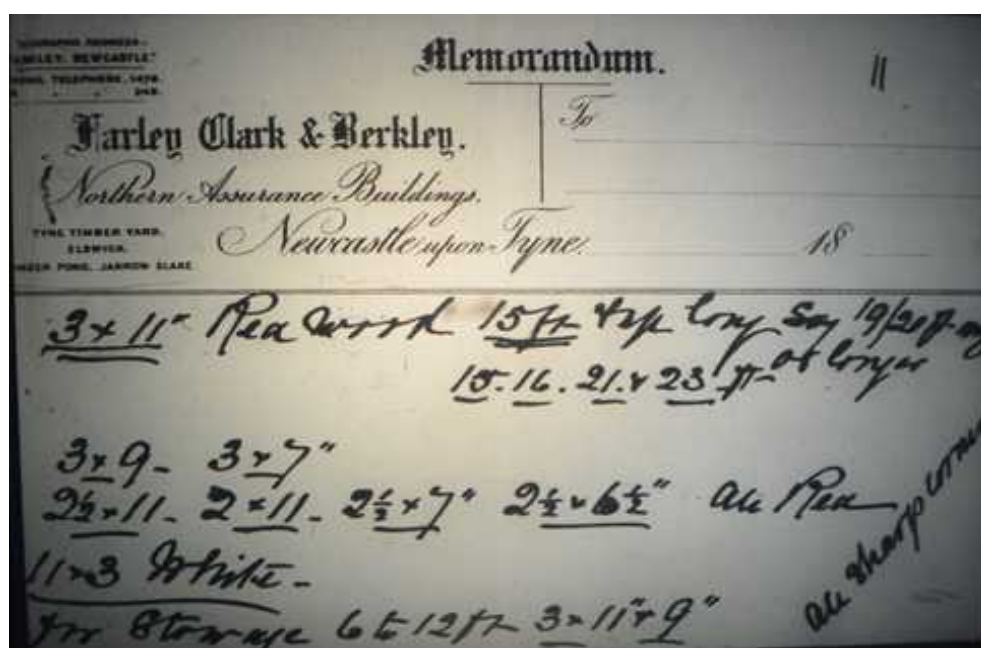 TELEGRAPHIC ADDRESS:-
"FARLEY, NEWCASTLE."
TELEPHONE,
Memorandum.
11
Farley Clark & Berkley.
To
Northern Assurance Buildings.
TYNE TIMBER YARD.
ELSWICK.
TIMBER POND, JARROW SLAKE
Newcastle upon Tyne.
18
3 x 11" Red wood 15ft & up long Say 19/20 ft
15. 16. 21. & 23 ft or longer
3 x 9 - 3 x 7"
2½ x 11 - 2 x 11 - 2½ x 7" 2½ x 6½" All Red
11 x 3 White -
for Stowage 6 to 12 ft 3 x 11" & 9"
All Sharp